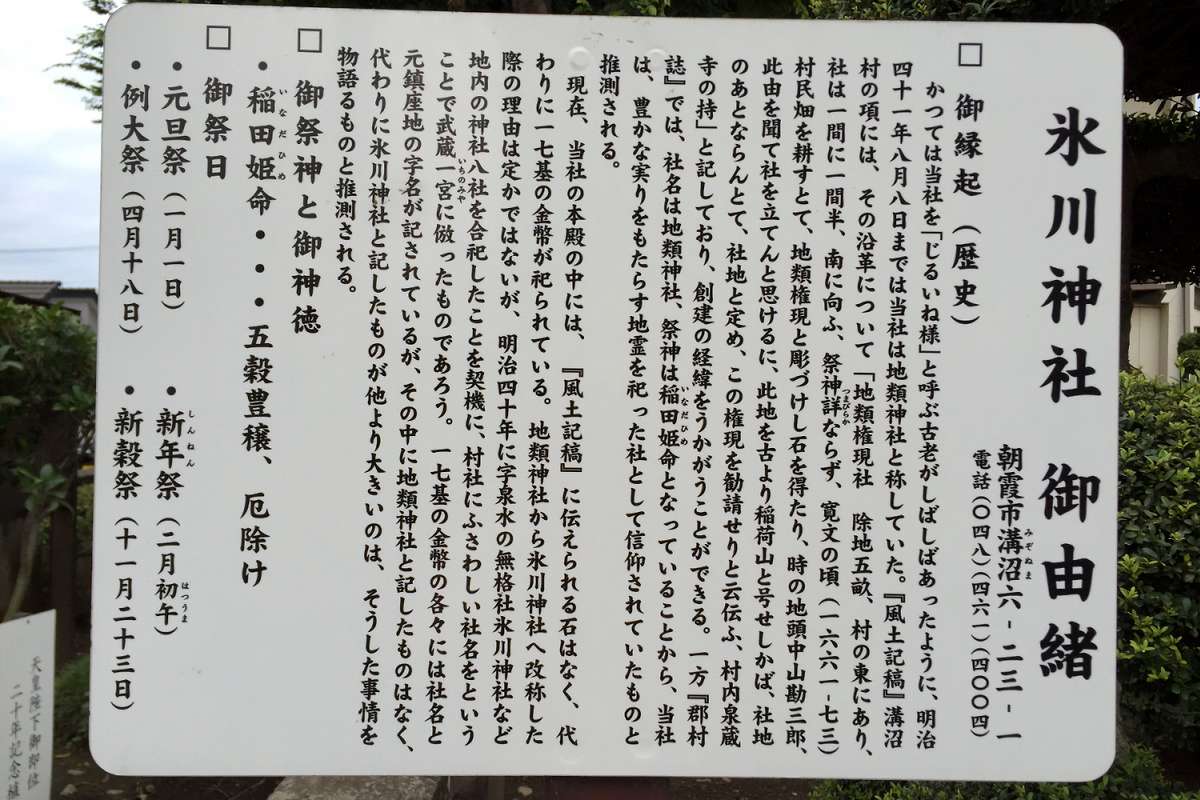 氷川神社 御由緒
朝霞市溝沼六-二三-一
みぞぬま
電話(〇四八)(四六一)(四〇〇四)
□ 御縁起(歴史)
かつては当社を「じるいね様」と呼ぶ古老がしばしばあったように、明治
四十一年八月八日までは当社は地類神社と称していた。『風土記稿』溝沼
村の項には、その沿革について「地類権現社 除地五畝、村の東にあり、
社は一間に一間半、南に向ふ、祭神詳ならず、寛文の頃(一六六一-七三)
つまびらか
村民畑を耕すとて、地類権現と彫づけし石を得たり、時の地頭中山勘三郎、
此由を聞て社を立てんと思けるに、此地を古より稲荷山と号せしかば、社地
のあとならんとて、社地と定め、この権現を勧請せりと云伝ふ、村内泉蔵
寺の持」と記しており、創建の経緯をうかがうことができる。一方『郡村
誌』では、社名は地類神社、祭神は稲田姫命となっていることから、当社
いなだひめ
は、豊かな実りをもたらす地霊を祀った社として信仰されていたものと
推測される。
現在、当社の本殿の中には、『風土記稿』に伝えられる石はなく、代
わりに一七基の金幣が祀られている。地類神社から氷川神社へ改称した
際の理由は定かではないが、明治四十年に字泉水の無格社氷川神社など
地内の神社八社を合祀したことを契機に、村社にふさわしい社名をという
ことで武蔵一宮に倣ったものであろう。一七基の金幣の各々には社名と
いちのみや
元鎮座地の字名が記されているが、その中に地類神社と記したものはなく、
代わりに氷川神社と記したものが他より大きいのは、そうした事情を
物語るものと推測される。
□ 御祭神と御神徳
・稲田姫命・・・五穀豊穣、厄除け
いなだひめ
□ 御祭日
・元旦祭(一月一日) ・新年祭(二月初午)
しんねん はつうま
・例大祭(四月十八日) ・新穀祭(十一月二十三日)
天皇陛下御即位
二十年記念植